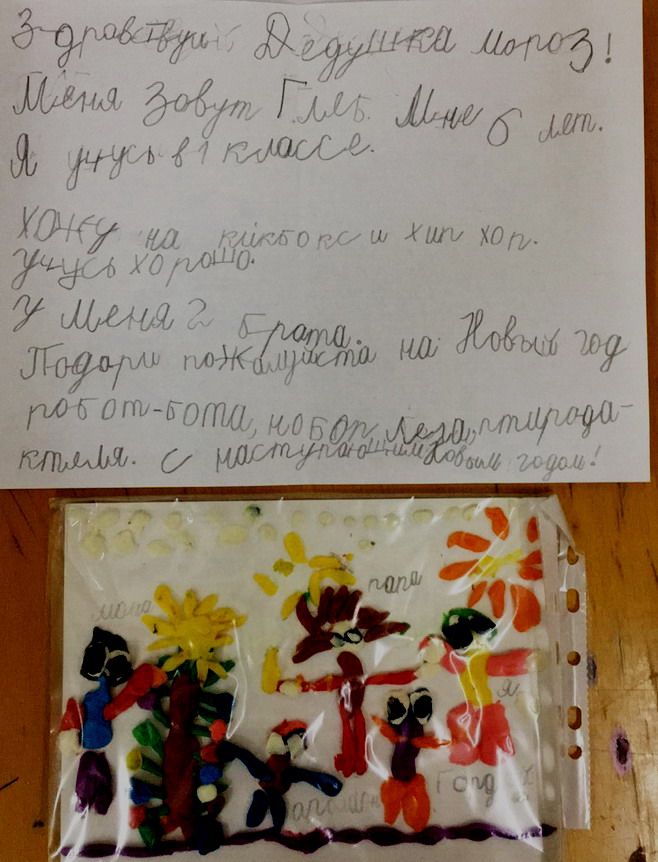 Здравствуй Дедушка мороз!
Меня Зовут Глеб. Мне 6 лет.
Я учусь в 1 классе.
хожу на кикбокс и хип хоп.
учусь хорошо.
У меня 2 брата.
Подари пожалуиста на Новый год
робот-бота, нобор Лега, птирода-
ктеля. с наступающим Новым годом!
папа
мама
я